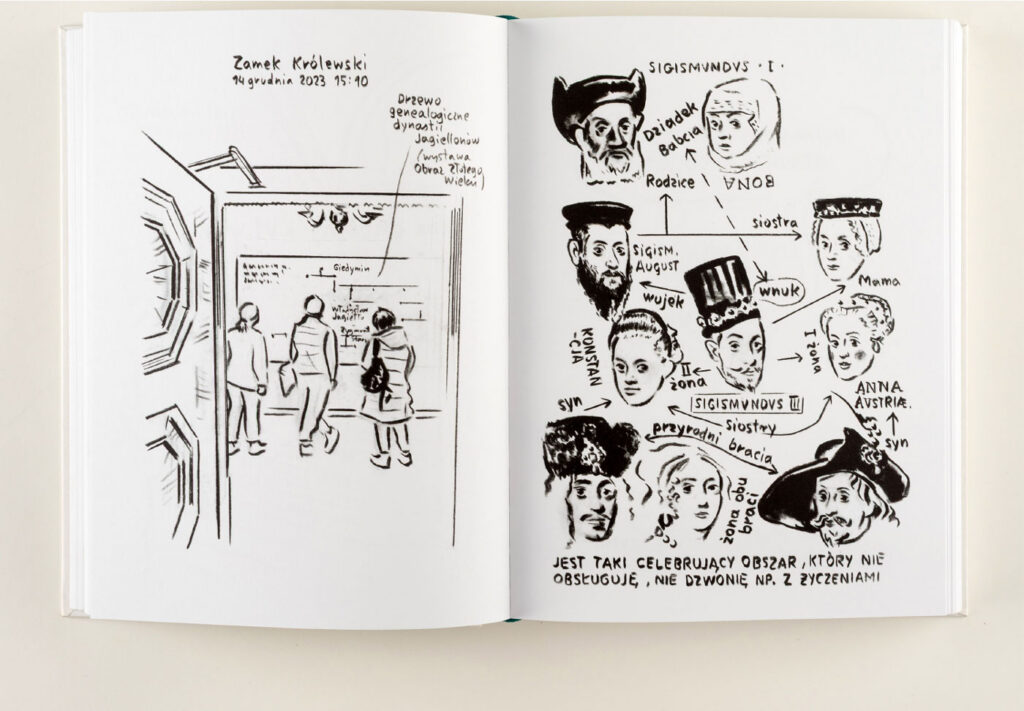 Zamek Królewski
14 grudnia 2023 15:10
Drzewo
genealogiczne
dynastii
Jagiellonów
(wystawa
Obraz Złotego
Wieku)
Giedymin
Władysław
Jagiełło
Zygmunt
Stary
SIGISMVNDVS · I ·
Dziadek
Babcia
BONA
Rodzice
siostra
SIGISM.
AUGUST
Mama
wujek
wnuk
KONSTAN
-CJA
I żona
II
żona
ANNA
AVSTRIÆ.
SIGISMVNDVS III
syn
siostry
syn
przyrodni bracia
żona obu
braci
JEST TAKI CELEBRUJĄCY OBSZAR, KTÓRY NIE
OBSŁUGUJĘ, NIE DZWONIĘ NP. Z ŻYCZENIAMI